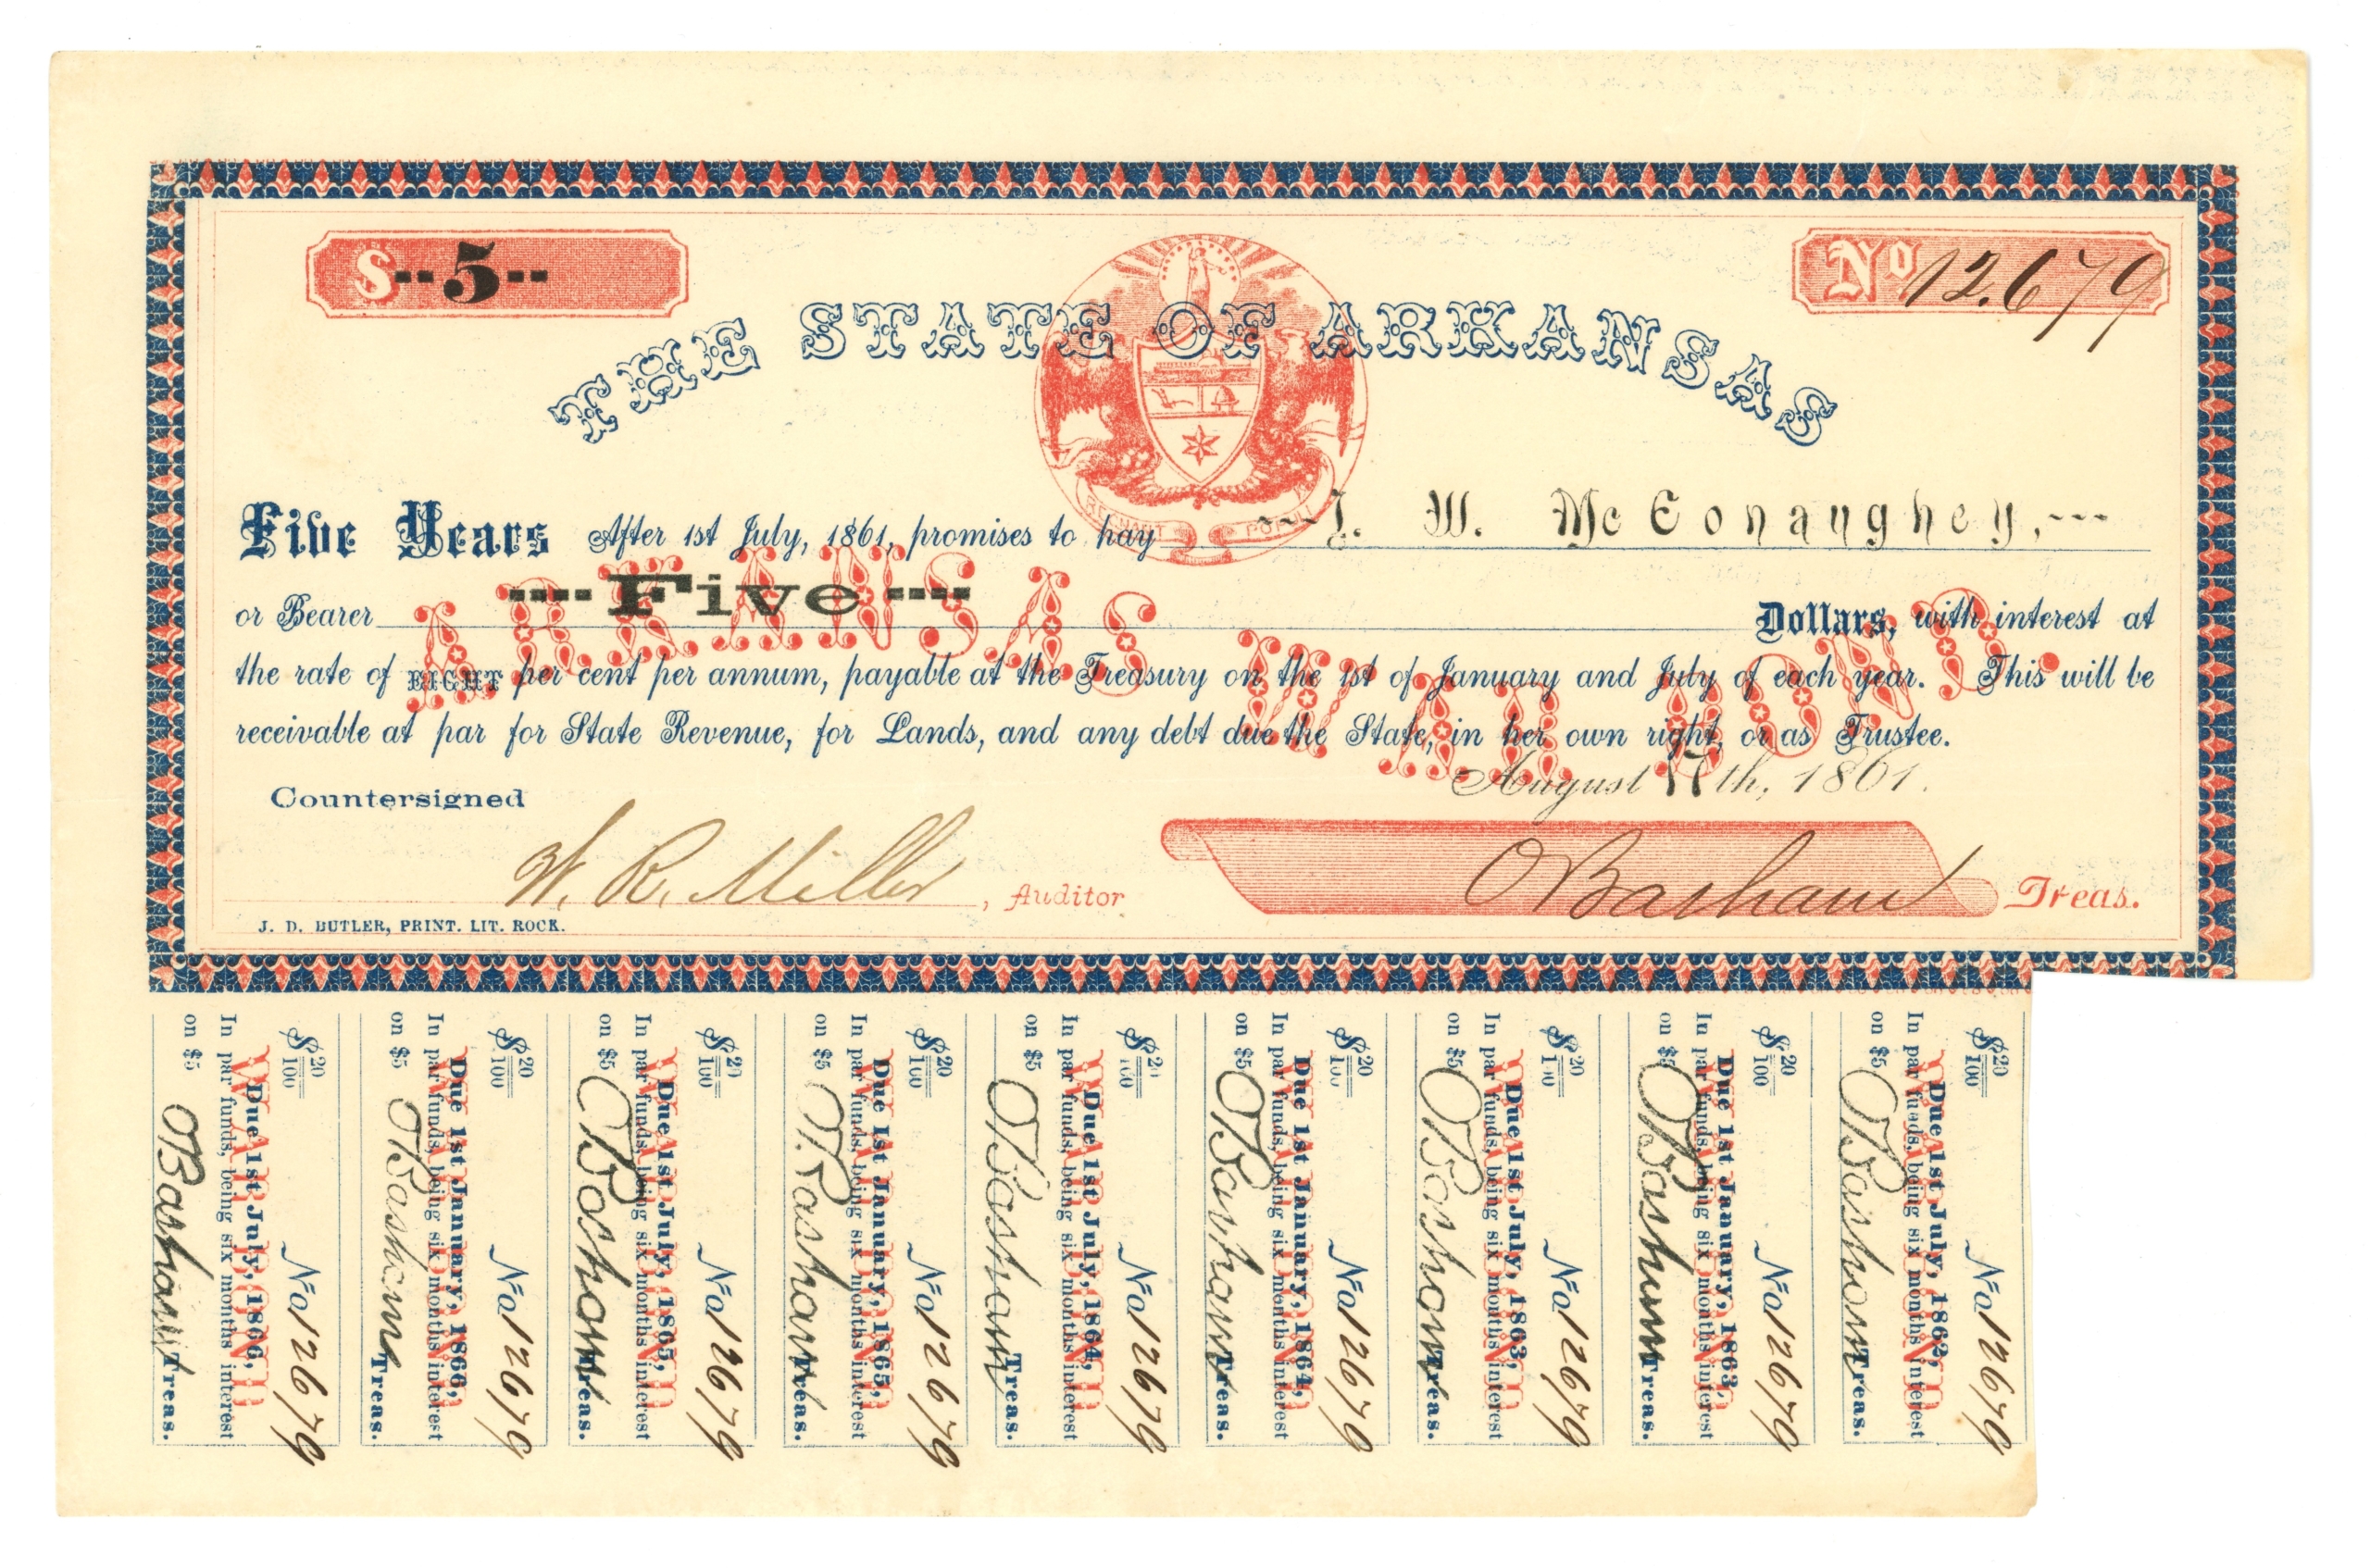 $--5--
No 12.679
THE STATE OF ARKANSAS
REGNANT POPULI
Five Years After 1st July, 1861, promises to pay ---J. W. McConaughey,---
or Bearer ---Five--- Dollars, with interest at
the rate of EIGHT per cent per annum, payable at the Treasury on the 1st of January and July of each year. This will be
receivable at par for State Revenue, for Lands, and any debt due the State, in her own right, or as Trustee.
ARKANSAS WAR BOND.
August 17th, 1861.
Countersigned
W. R. Miller, Auditor
O Basham Treas.
J. D. BUTLER, PRINT. LIT. ROCK.
$20/100 No 12679
Due 1st July, 1866,
In par funds, being six months interest
on $5 O Basham Treas.
WAR BOND
$20/100 No 12679
Due 1st January, 1866,
In par funds, being six months interest
on $5 O Basham Treas.
WAR BOND
$20/100 No 12679
Due 1st July, 1865,
In par funds, being six months interest
on $5 O Basham Treas.
WAR BOND
$20/100 No 12679
Due 1st January, 1865,
In par funds, being six months interest
on $5 O Basham Treas.
WAR BOND
$20/100 No 12679
Due 1st July, 1864,
In par funds, being six months interest
on $5 O Basham Treas.
WAR BOND
$20/100 No 12679
Due 1st January, 1864,
In par funds, being six months interest
on $5 O Basham Treas.
WAR BOND
$20/100 No 12679
Due 1st July, 1863,
In par funds, being six months interest
on $5 O Basham Treas.
WAR BOND
$20/100 No 12679
Due 1st January, 1863,
In par funds, being six months interest
on $5 O Basham Treas.
WAR BOND
$20/100 No 12679
Due 1st July, 1862,
In par funds, being six months interest
on $5 O Basham Treas.
WAR BOND